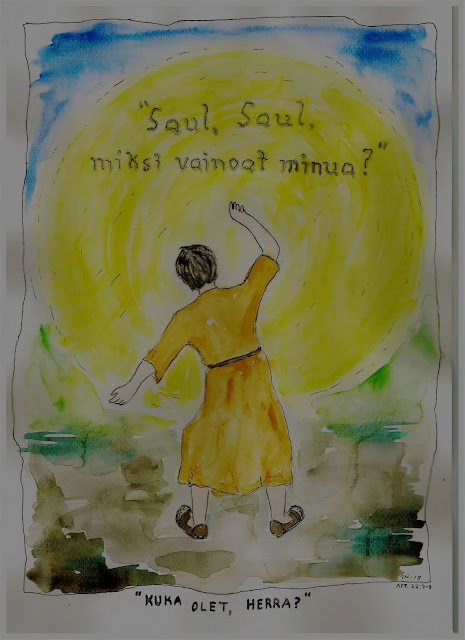 "Saul, Saul,
miksi vainoat minua?"
APT. 22:7-8
"KUKA OLET, HERRA?"